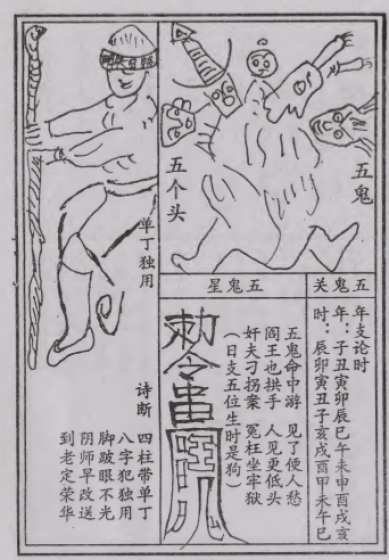 五鬼
五个头
五鬼关
年支论时
年：子丑寅卯辰巳午未申酉戌亥
时：辰卯寅丑子亥戌酉申未午巳
五鬼星
五鬼命中游　见了便人愁
阎王也拱手　人见更低头
奸夫刁拐案　冤枉坐牢狱
（日支五位生时是狗）
勅令
单丁独用
诗断
四柱带单丁
八字犯独用
脚跛眼不光
阴师早改送
到老定荣华